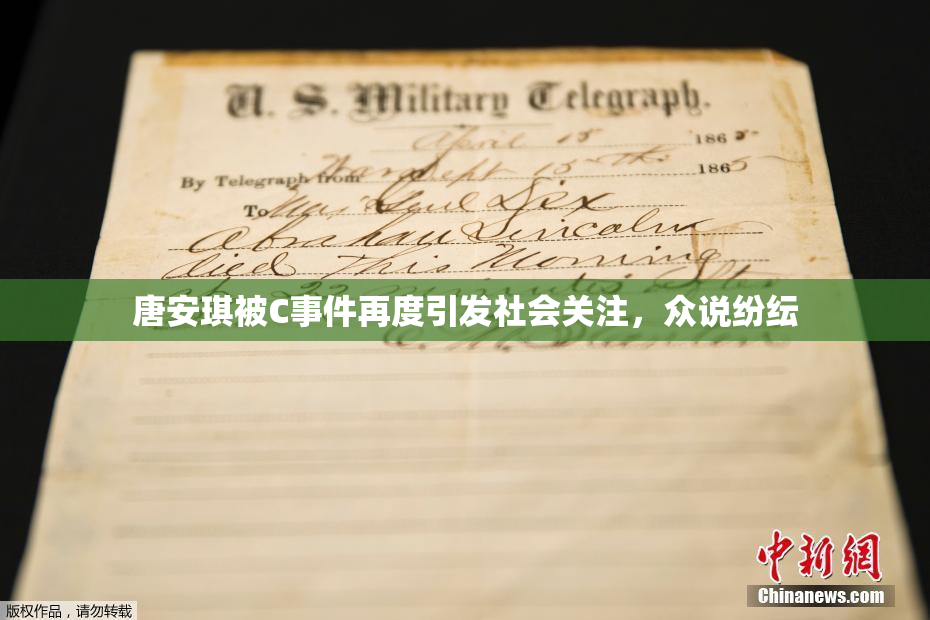 U. S. Military Telegraph.
April 15 1865
By Telegraph from War Dept 15th 1865
To Maj Genl Dix
Abraham Lincoln
died This Morning
at 22 minutes after
唐安琪被C事件再度引发社会关注，众说纷纭
中新网
Chinanews.com
版权作品，请勿转载